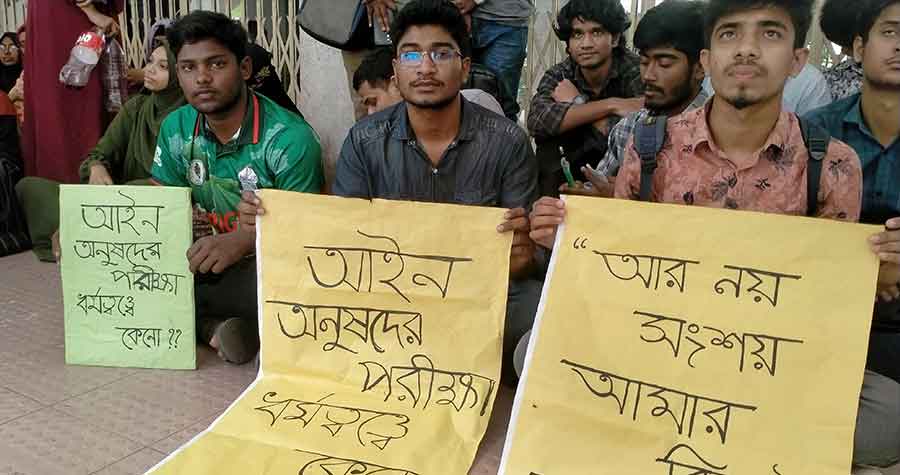 আইন
অনুষদের
পরীক্ষা
ধর্মতত্ত্বে
কেনো ??
আইন
অনুষদের
পরীক্ষা
ধর্মতত্ত্বে
“আর নয়
সংশয়
আমার